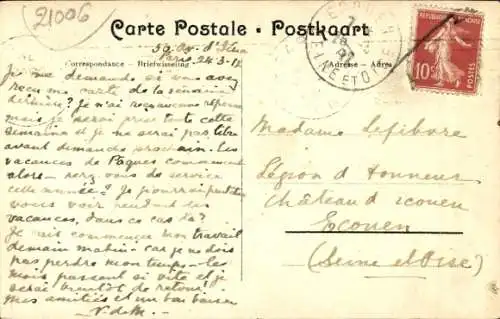 21006
Carte Postale - Postkaart
Correspondance - Briefwisseling
Adresse - Adres
Paris 24-3-12
Je me demande si vous avez
reçu ma carte de la semaine
dernière? Je n'ai reçu aucune réponse
mais je serai prise toute cette
semaine et je ne serai pas libre
avant dimanche prochain. Les
vacances de Pâques commencent
alors - serez vous de service
cette année? Je pourrai peut être
vous voir pendant les
vacances, dans ce cas là?
Je vais commencer mon travail
demain matin - car je ne dois
pas perdre mon temps - les
mois passent si vite et je
serai bientôt de retour!
Mes amitiés et un bon baiser
V. de M.
REPUBLIQUE FRANÇAISE
10c
POSTES
SEINE ET OISE
Madame Lefibvre
Légion d'Honneur
Château d'Ecouen
Ecouen
(Seine et Oise)